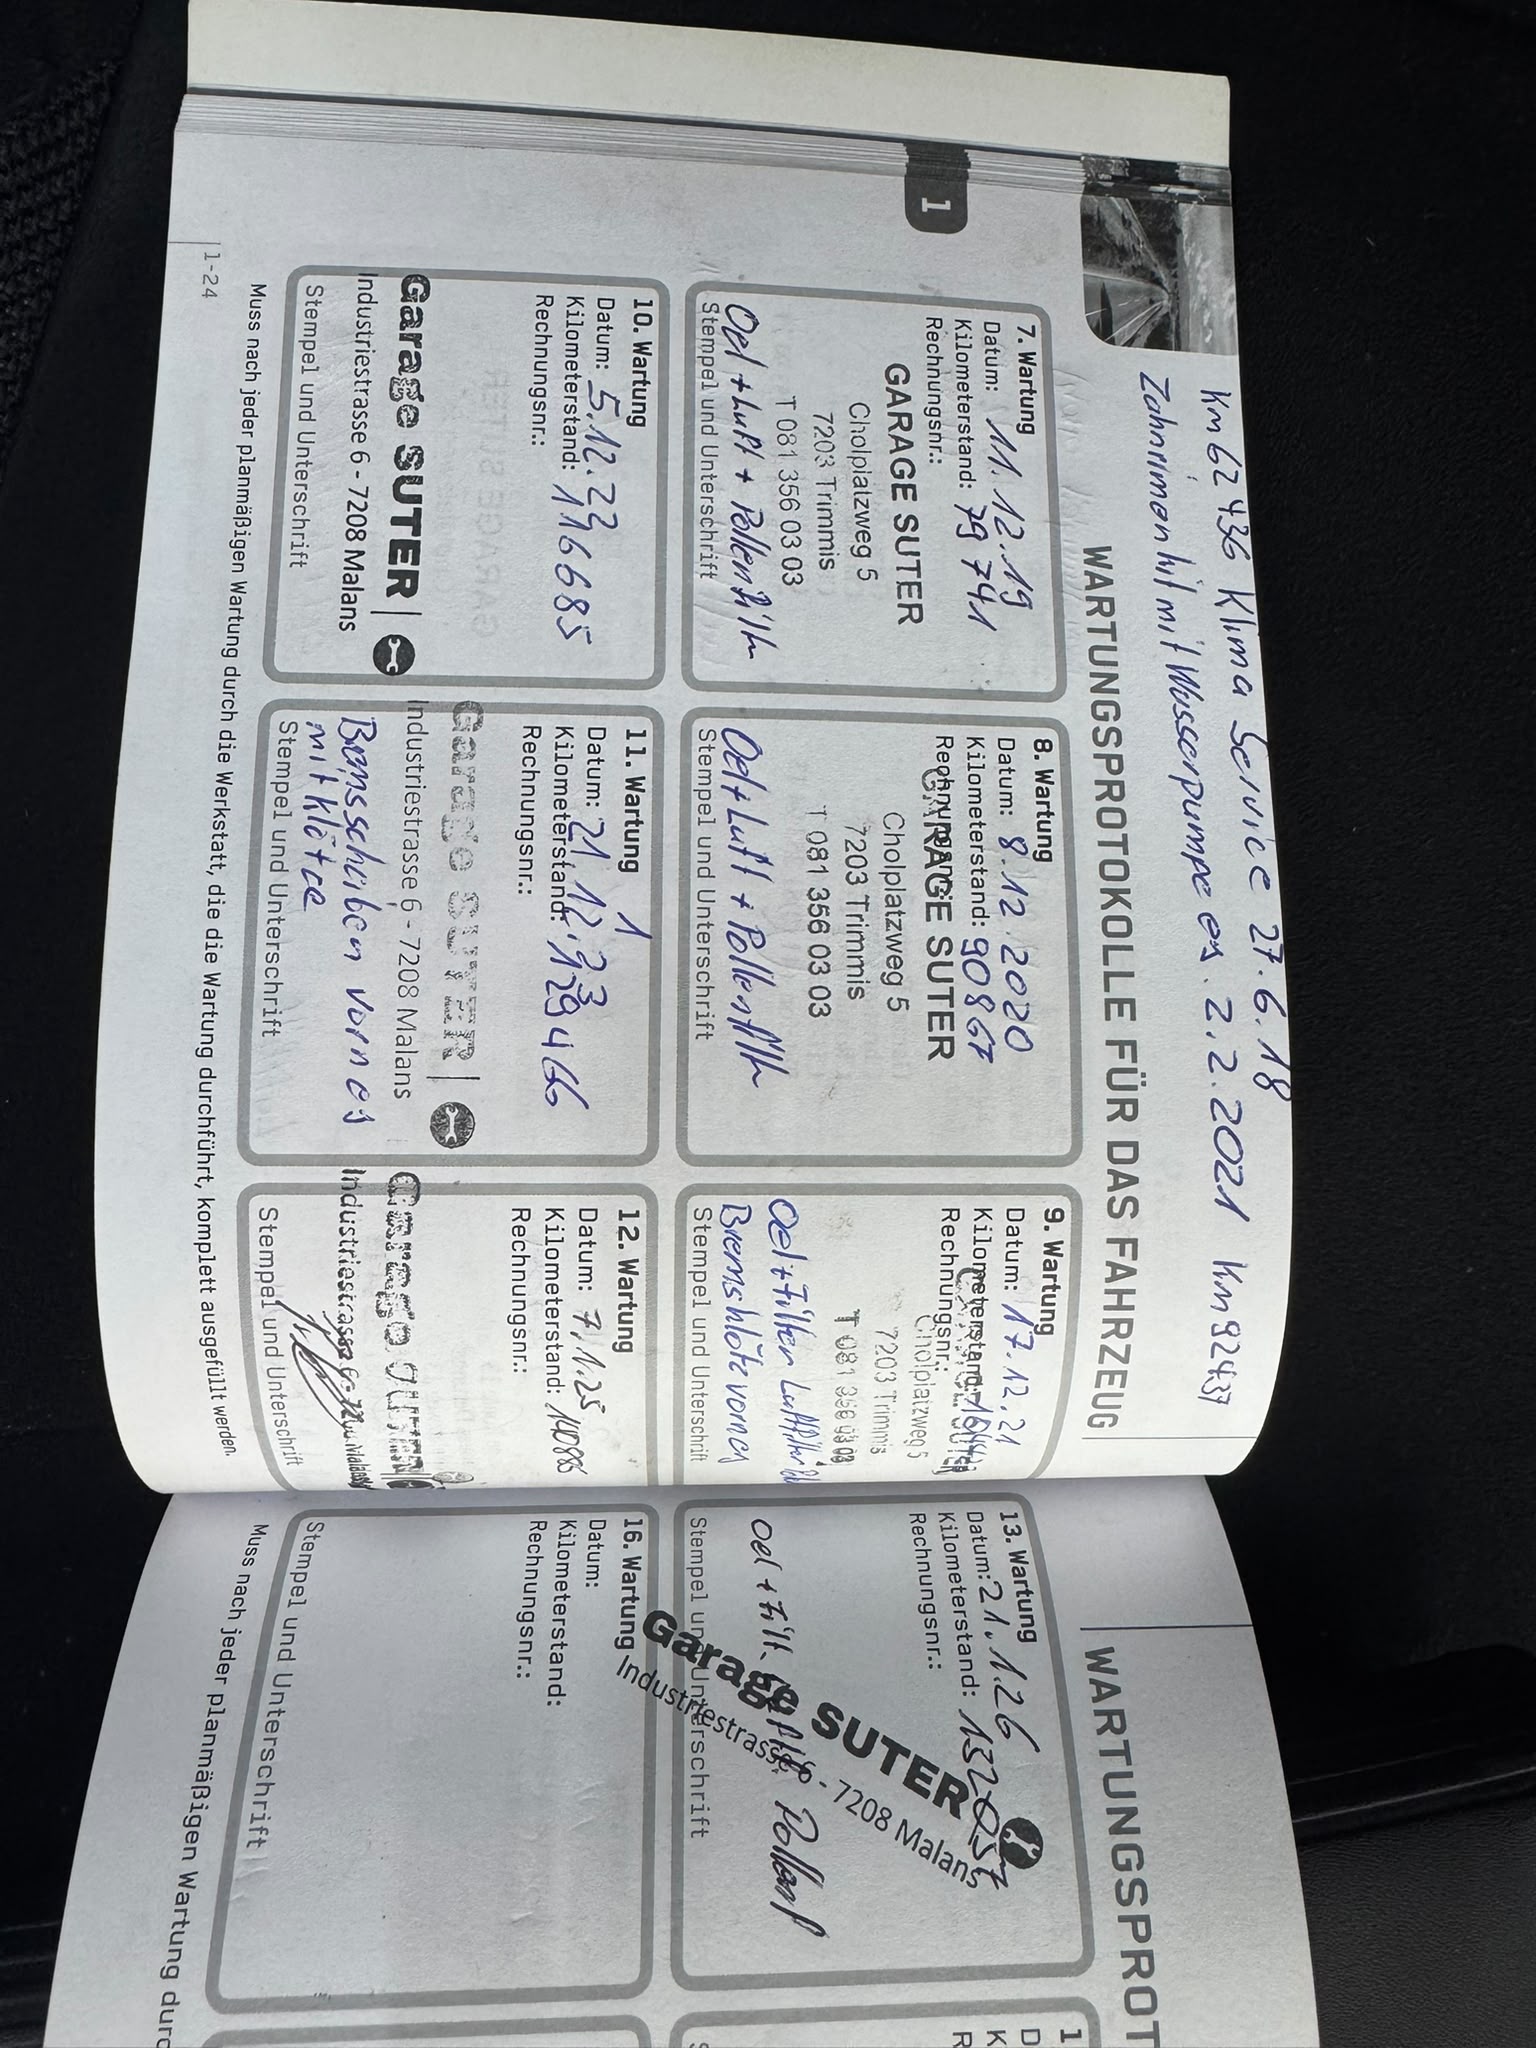 Km 62 436 Klima Service 27.6.18
Zahnriemen kit mit Wasserpumpe es. 2.2.2021 Km 92437
WARTUNGSPROTOKOLLE FÜR DAS FAHRZEUG
1
7. Wartung
Datum: 11.12.19
Kilometerstand: 79 741
Rechnungsnr.:
GARAGE SUTER
Cholplatzweg 5
7203 Trimmis
T 081 356 03 03
Oel + Luft + Pollenfilter
Stempel und Unterschrift
8. Wartung
Datum: 8.12.2020
Kilometerstand: 90867
Rechnungsnr.:
GARAGE SUTER
Cholplatzweg 5
7203 Trimmis
T 081 356 03 03
Oel + Luft + Pollenfilter
Stempel und Unterschrift
9. Wartung
Datum: 17.12.21
Kilometerstand:
Rechnungsnr.:
Cholplatzweg 5
7203 Trimmis
T 081 356 03 03
Oel + Filter Luftfilter
Bremsklötze vorne
Stempel und Unterschrift
10. Wartung
Datum: 5.12.22
Kilometerstand: 116685
Rechnungsnr.:
Garage SUTER
Industriestrasse 6 - 7208 Malans
Stempel und Unterschrift
11. Wartung
Datum: 21.12.23
Kilometerstand: 129466
Rechnungsnr.:
Garage SUTER
Industriestrasse 6 - 7208 Malans
Bremsscheiben vorne
mit Klötze
Stempel und Unterschrift
12. Wartung
Datum: 7.1.25
Kilometerstand:
Rechnungsnr.:
Garage SUTER
Industriestrasse
Stempel und Unterschrift
Muss nach jeder planmäßigen Wartung durch die Werkstatt, die die Wartung durchführt, komplett ausgefüllt werden.
1-24
WARTUNGSPROT
13. Wartung
Datum: 21.1.26
Kilometerstand:
Rechnungsnr.:
Garage SUTER
Industriestrasse 6 - 7208 Malans
Oel + Filt.
Stempel und Unterschrift
16. Wartung
Datum:
Kilometerstand:
Rechnungsnr.:
Stempel und Unterschrift
Muss nach jeder planmäßigen Wartung durc